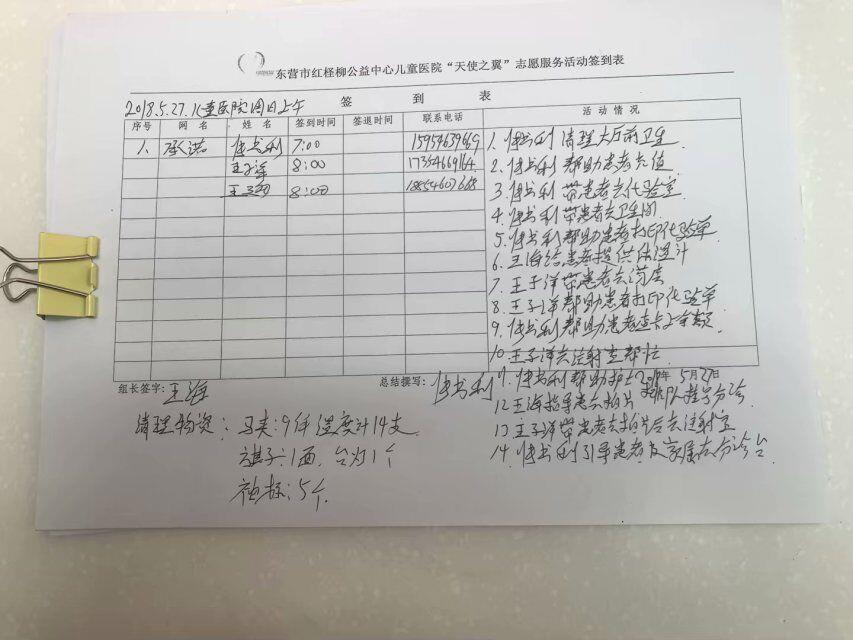 东营市红柽柳公益中心儿童医院“天使之翼”志愿服务活动签到表
2018.5.27.儿童医院周日上午
签 到 表
序号 网 名 姓 名 签到时间 签退时间 联系电话 活 动 情 况
1、 承诺 付书利 7:00 15954639669
王子洋 8:00 17354669164
王海 8:00 18854607668
1、付书利 清理大厅前卫生
2、付书利 帮助患者充值
3、付书利 带患者去化验室
4、付书利 带患者去卫生间
5、付书利帮助患者打印化验单
6、王海给患者提供体温计
7、王子洋带患者去
8、王子洋帮助患者打印化验单
9、付书利帮助患者查卡上余额
10、王子洋去注射室帮忙
组长签字: 王海
总结撰写: 付书利
年 5月27日
11、付书利 帮助护士 排队挂号分诊
12、王海指导患者去拍片
13、王子洋带患者去拍片后去注射室
14、付书利引导患者及家属在分诊台
清理物资: 马夹:9件 温度计14支
旗子:1面、台灯1个
袖标:5个